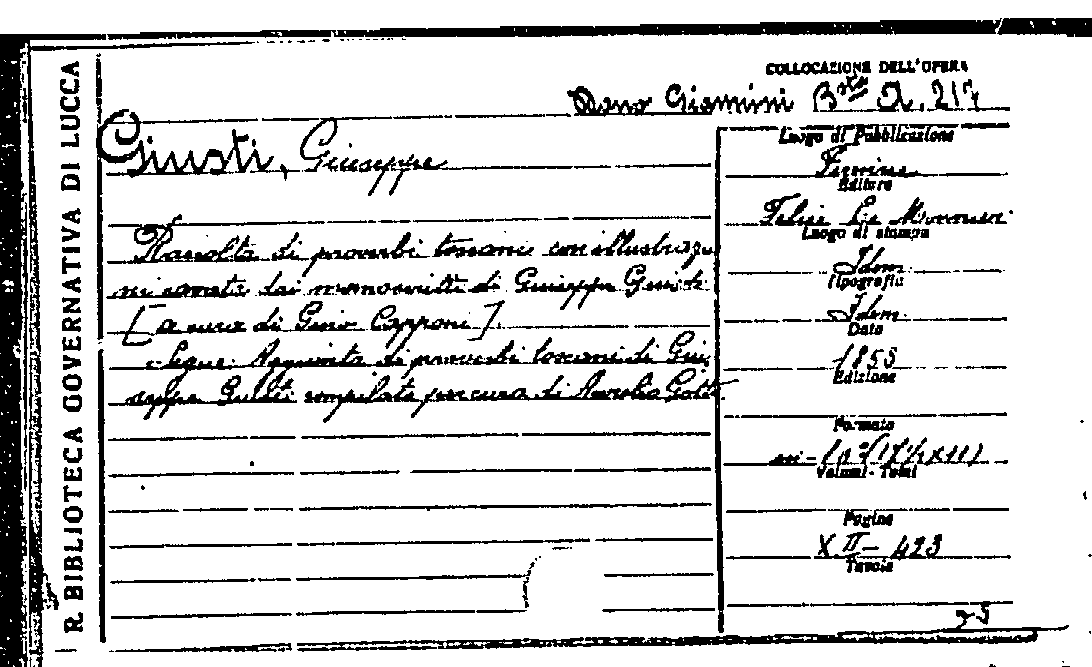 R. BIBLIOTECA GOVERNATIVA DI LUCCA
COLLOCAZIONE DELL'OPERA
Dono Giannini Bta A. 217
Giusti, Giuseppe
Raccolta di proverbi toscani con illustrazio
ni cavata dai manoscritti di Giuseppe Giusti
[a cura di Gino Capponi].
Segue: Aggiunta di proverbi toscani di Giu
seppe Giusti compilata per cura di Aurelio Gotti.
Luogo di Pubblicazione
Firenze
Editore
Felice Le Monnier
Luogo di stampa
Idem
Tipografia
Idem
Data
1855
Edizione
Formato
Volumi - Tomi
Pagine
XII - 423
Tavole
25